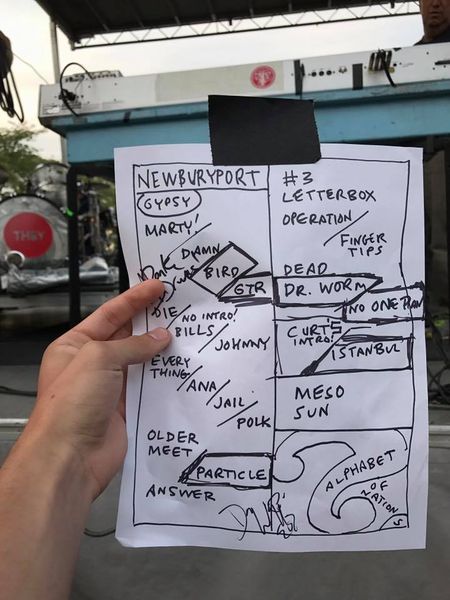 THEY
NEWBURYPORT
GYPSY
MARTY!
DAMN
BIRD
GTR
DIE
NO INTRO!
BILLS
JOHNNY
EVERY
THING
ANA
JAIL
POLK
OLDER
MEET
PARTICLE
ANSWER
#3
LETTERBOX
OPERATION
FINGER
TIPS
DEAD
DR. WORM
NO ONE
CURT'S
INTRO!
ISTANBUL
MESO
SUN
ALPHABET
OF
NATIONS